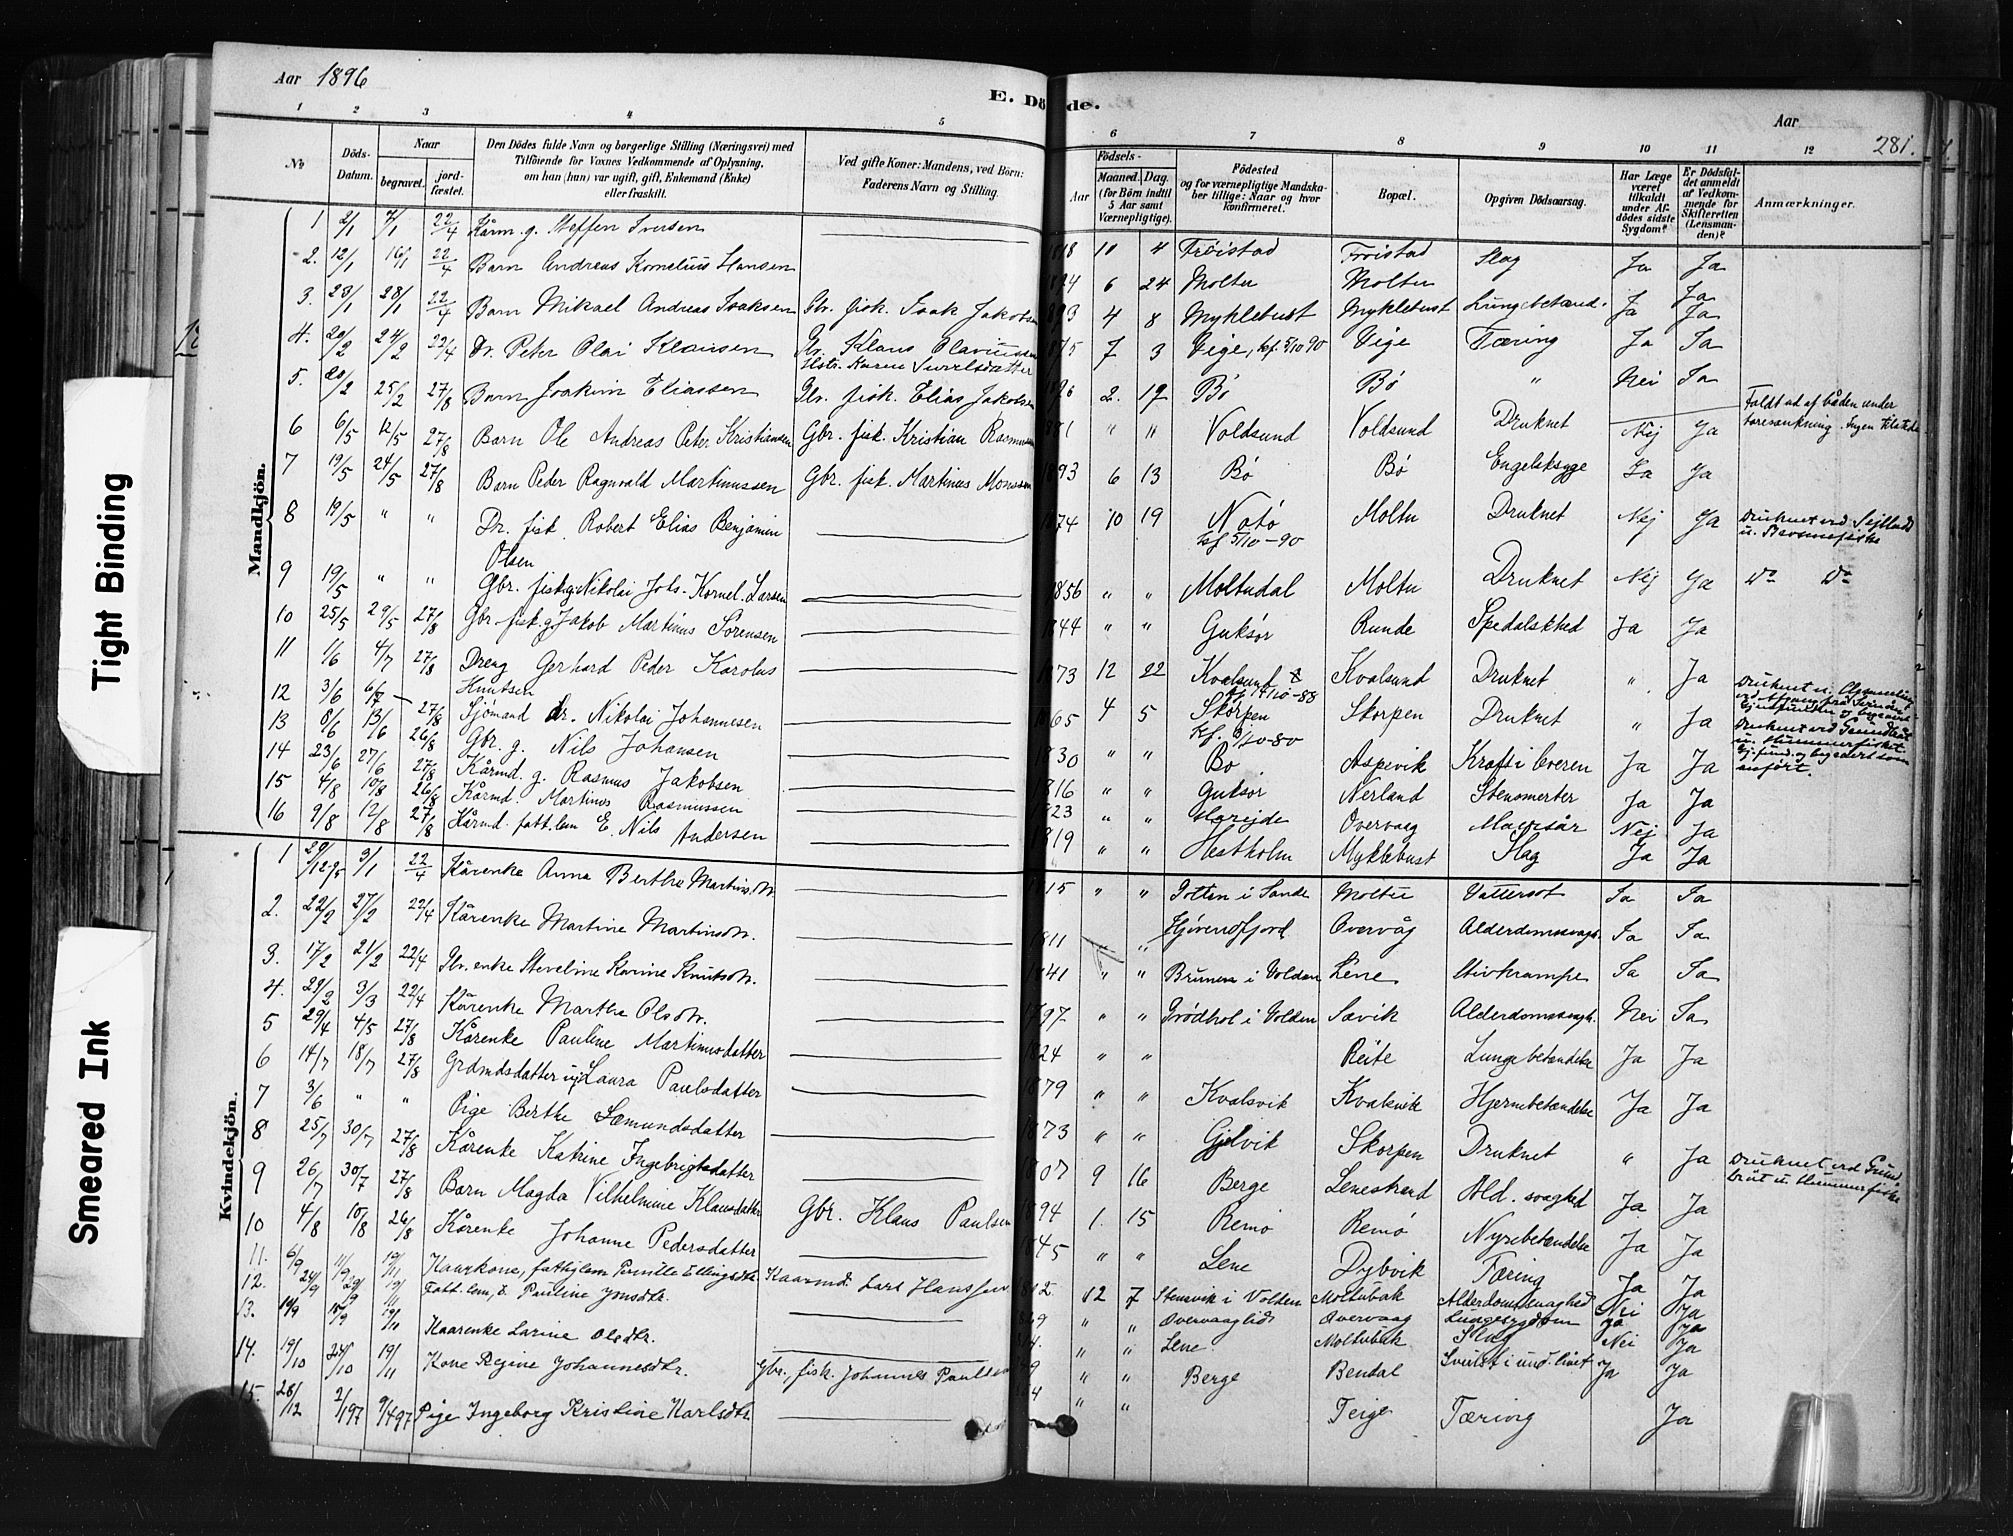 Aar 1896
E. Dö de.
Aar
281.
1 2 3 4 5 6 7 8 9 10 11 12
No
Döds-Datum.
Naar
begravet.
jord-fæstet.
Den Dödes fulde Navn og borgerlige Stilling (Næringsvei) med
Tilföiende for Voxnes Vedkommende af Oplysning,
om han (hun) var ugift, gift, Enkemand (Enke)
eller fraskilt.
Ved gifte Koner: Mandens, ved Börn:
Faderens Navn og Stilling.
Födsels-
Aar
Maaned. Dag.
(for Börn indtil
5 Aar samt
Værnepligtige).
Födested
og for værnepligtige Mandska-
ber tillige: Naar og hvor
konfirmeret.
Bopæl.
Opgiven Dödsaarsag.
Har Læge
været
tilkaldt
under Af-
dödes sidste
Sygdom?
Er Dödsfal-
det anmeldt
af Vedkom-
mende for
Skifteretten
(Lensman-
den)?
Anmærkninger.
Mandkjön.
1 2/1 7/1 22/4 Kårm. g. Steffen Iversen 10 4 Frøistad Frøistad Slag Ja Ja
2. 12/1 16/1 22/4 Barn Andreas Kornelius Hansen 6 24 Moltu Moltu Ja
3. 23/1 28/1 22/4 Barn Mikael Andreas Isaksen Gbr. fisk. Isak Jakobsen 4 8 Myklebust Myklebust Lungebetænd. Ja Ja
4. 20/2 24/2 22/4 Dr. Peter Olai Klausen Gbr. Klaus Olavius 7 3 Teige, kf. 5/10 90 Teige Tæring Ja Ja
Hstr. Karen
5. 20/2 25/2 27/8 Barn Joakim Eliassen Gbr. fisk. Elias Jakobsen 2. 12 Bø Bø " Nei Ja
6 6/5 12/5 27/8 Barn Ole Andreas Peter Kristiansen Gbr. fisk. Kristian Rasmussen " " Voldsund Voldsund Druknet Nej Ja Faldt ud af båden under
Ingen tilstede
7 19/5 24/5 27/8 Barn Peder Ragnvald Martinussen Gbr. fisk. Martinus Monssen 1893 6 13 Bø Bø Engelsksyge Ja Ja
8 19/5 " " Dr. fisk. Robert Elias Benjamin
Olsen 1874 10 19 Notø
kf 5/10-90 Moltu Druknet Nej Ja Druknet ved
9 19/5 " " Gbr. fisk. g. Nikolai Johs. Kornel. Larsen 1856 " " Moltudal Moltu Druknet Nej Ja Do Do
10 25/5 29/5 27/8 Gbr. fisk. g. Jakob Martinus Sørensen 1844 " " Guksør Runde Spedalskhed Ja Ja
11 1/6 4/7 27/8 Dreng Gerhard Peder Karolus
Knutsen 1873 12 22 Kvalsund
kf. 14/10-88 Kvalsund Druknet " Ja
12 3/6 6/7 27/8 Sjømand dr. Nikolai Johannesen 1865 4 5 Skorpen
Kf. 3/10-80 Skorpen Druknet " Ja
13 8/6 13/6 26/8 Gbr. g. Nils Johansen 1830 " " Bø Aspevik Kræft i leveren Ja Ja
14 23/6 27/6 27/8 Kårmd. g. Rasmus Jakobsen 1816 " " Guksør Nerland Stensmerter Ja Ja
15 4/8 10/8 26/8 Kårmd. Martinus Rasmussen 1823 " " Hareide Overvaag Mavesår Nej Ja
16 9/8 12/8 27/8 Kårmd. fatt. lem E. Nils Andersen 1819 " " Hestholm Myklebust Slag Ja Ja
Kvindekjön.
1 29/12 95 3/1 22/4 Kårenke Anna Berthe Martinsdtr. 15 " " Totten i Sande Moltu Vattersot Ja Ja
2. 22/2 27/2 22/4 Kårenke Martine Martinsdtr. 1811 " Hjørendfjord Overvåg Alderdomssvagh. Ja Ja
3. 17/2 21/2 22/4 Gbr. enke Steveline Karine Knutsdtr. 1841 " " Brunen i Volden Lene Stivkrampe Ja Ja
4. 29/2 3/3 22/4 Kårenke Marthe Olsdtr. 1797 " " i Volden Sævik Alderdomssvagh. Nei Ja
5 29/4 4/5 27/8 Kårenke Pauline Martinusdatter 1824 " " Reite Lungebetændelse Ja Ja
6 14/7 18/7 27/8 Grdmdsdatter ug. Laura Paulsdatter 1879 " " Kvalsvik Kvalsvik Hjernebetændelse Ja Ja
7 3/6 " " Pige Berthe Sæmundsdatter 1873 " " Gjelvik Skorpen Druknet " Ja Druknet ved Grund-
brut u. Hummerfiske
8 25/7 30/7 27/8 Kårenke Katrine Ingebrigtsdatter 1807 9 16 Berge Lenestrand Ald. svaghed Ja Ja
9 26/7 30/7 27/8 Barn Magda Vilhelmine Klausdatter Gbr. Klaus Paulsen 1894 1. 15 Remø Remø Nyrebetændelse Ja Ja
10 4/8 10/8 26/8 Kårenke Johanne Pedersdatter 1845 " " Lene Dybvik Tæring Ja Ja
11. 6/9 11/9 19/11 Kaarkone, fattiglem Pernille Ellingsdtr. Kaarmd. Lars Hanssen 12 7 Stensvik i Volden Moltubak Alderdomssvaghed Nei Ja
12. 24/9 29/9 19/11 Fatt. lem, E. Pauline Jonsdtr. " " Overvaaglid Overvaag Lungesygdom Ja Ja
13. 10/9 15/9 19/11 Kaarenke Larine Olsdtr. " " Lene Moltubak Slag Nei Ja
14. 19/10 24/10 19/11 Kone Regine Johannesdtr. Gbr., fisk. Johannes Paulsen " " Berge Bendal Svulst i und. livet Ja Ja
15. 28/12 2/1 97 9/4 97 Pige Ingeborg Kristine Karlsdtr. " " Teige Tæring Ja
Tight Binding
Smeared Ink